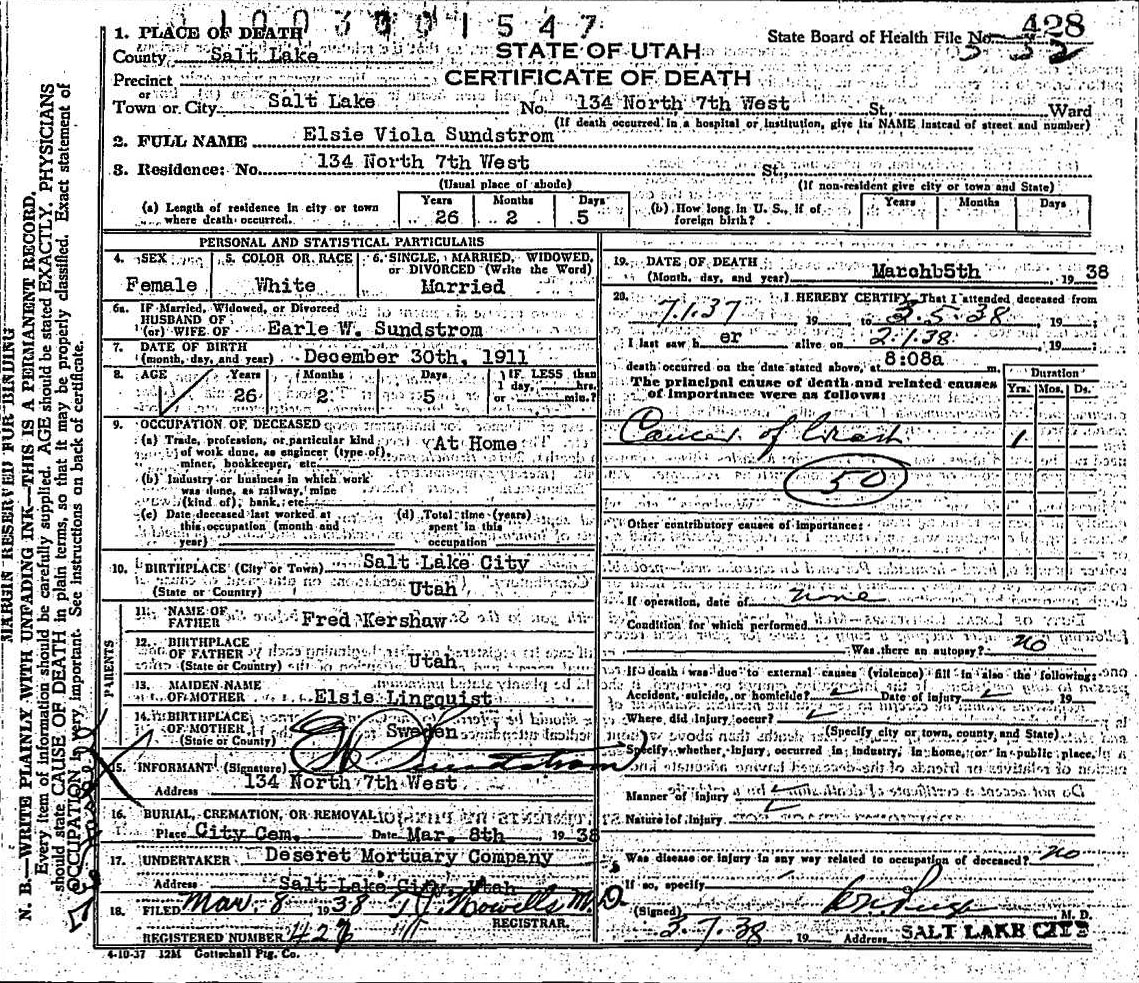 1 0 0 3 0 0 1 5 4 7
1. PLACE OF DEATH
State Board of Health File No. 428
County Salt Lake
STATE OF UTAH
Precinct
CERTIFICATE OF DEATH
or
Town or City Salt Lake No. 134 North 7th West St., Ward
(If death occurred in a hospital or institution, give its NAME instead of street and number)
2. FULL NAME Elsie Viola Sundstrom
3. Residence: No. 134 North 7th West St.,
(Usual place of abode) (If non-resident give city or town and State)
(a) Length of residence in city or town where death occurred.
Years Months Days
26 2 5
(b) How long in U. S., if of foreign birth?
Years Months Days
PERSONAL AND STATISTICAL PARTICULARS
4. SEX
Female
5. COLOR OR RACE
White
6. SINGLE, MARRIED, WIDOWED,
or DIVORCED (Write the Word)
Married
6a. IF Married, Widowed, or Divorced
HUSBAND OF
(or) WIFE OF Earle W. Sundstrom
7. DATE OF BIRTH
(month, day, and year) December 30th, 1911
8. AGE Years Months Days IF LESS than
1 day, hrs.
or min.?
26 2 5
9. OCCUPATION OF DECEASED
(a) Trade, profession, or particular kind
of work done, as engineer (type of),
miner, bookkeeper, etc. At Home
(b) Industry or business in which work
was done, as railway, mine
(kind of); bank, etc.
(c) Date deceased last worked at
this occupation (month and
year)
(d) Total time (years)
spent in this
occupation
10. BIRTHPLACE (City or Town) Salt Lake City
(State or Country) Utah
PARENTS
11. NAME OF
FATHER Fred Kershaw
12. BIRTHPLACE
OF FATHER
(State or Country) Utah
13. MAIDEN NAME
OF MOTHER Elsie Lingquist
14. BIRTHPLACE
OF MOTHER
(State or County) Sweden
15. INFORMANT (Signature) E W Sundstrom
Address 134 North 7th West
16. BURIAL, CREMATION, OR REMOVAL
Place City Cem. Date Mar. 8th 1938
17. UNDERTAKER Deseret Mortuary Company
Address Salt Lake City, Utah
18. FILED Mar. 8 1938 Howells M.D.
REGISTRAR.
REGISTERED NUMBER
4-10-37 12M Gottschall Ptg. Co.
19. DATE OF DEATH
(Month, day, and year) Marchb5th 1938
20. I HEREBY CERTIFY, That I attended deceased from
7.1.37 19 to 3.5.38 19 ;
I last saw h er alive on 2.1.38 19 ;
death occurred on the date stated above, at 8:08a m.
The principal cause of death and related causes
of importance were as follows:
Duration
Yrs. Mos. Ds.
Cancer of 1
50
Other contributory causes of importance:
If operation, date of none
Condition for which performed
Was there an autopsy? no
If death was due to external causes (violence) fill in also the following:
Accident, suicide, or homicide? Date of injury 19
Where did injury occur?
(Specify city or town, county, and State)
Specify whether injury occurred in industry, in home, or in public place.
Manner of injury
Nature of injury
Was disease or injury in any way related to occupation of deceased? no
If so, specify
(Signed) M. D.
3.7.38 19 Address SALT LAKE CITY
MARGIN RESERVED FOR BINDING
N. B.—WRITE PLAINLY WITH UNFADING INK—THIS IS A PERMANENT RECORD.
Every item of information should be carefully supplied. AGE should be stated EXACTLY. PHYSICIANS
should state CAUSE OF DEATH in plain terms, so that it may be properly classified. Exact statement of
OCCUPATION is very important. See instructions on back of certificate.